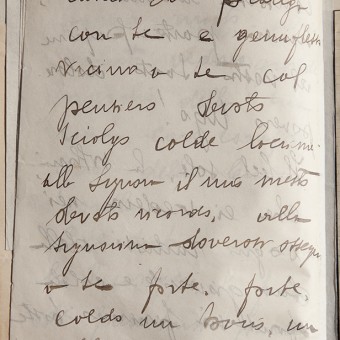 con te e genuflessa
vicino a te col
pensiero devoto
sciolgo calde lacrime.
alla Signora il mio mesto
devoto ricordo, alla
signorina doverosi ossequi
a te forte, forte,
caldo un bacio, un